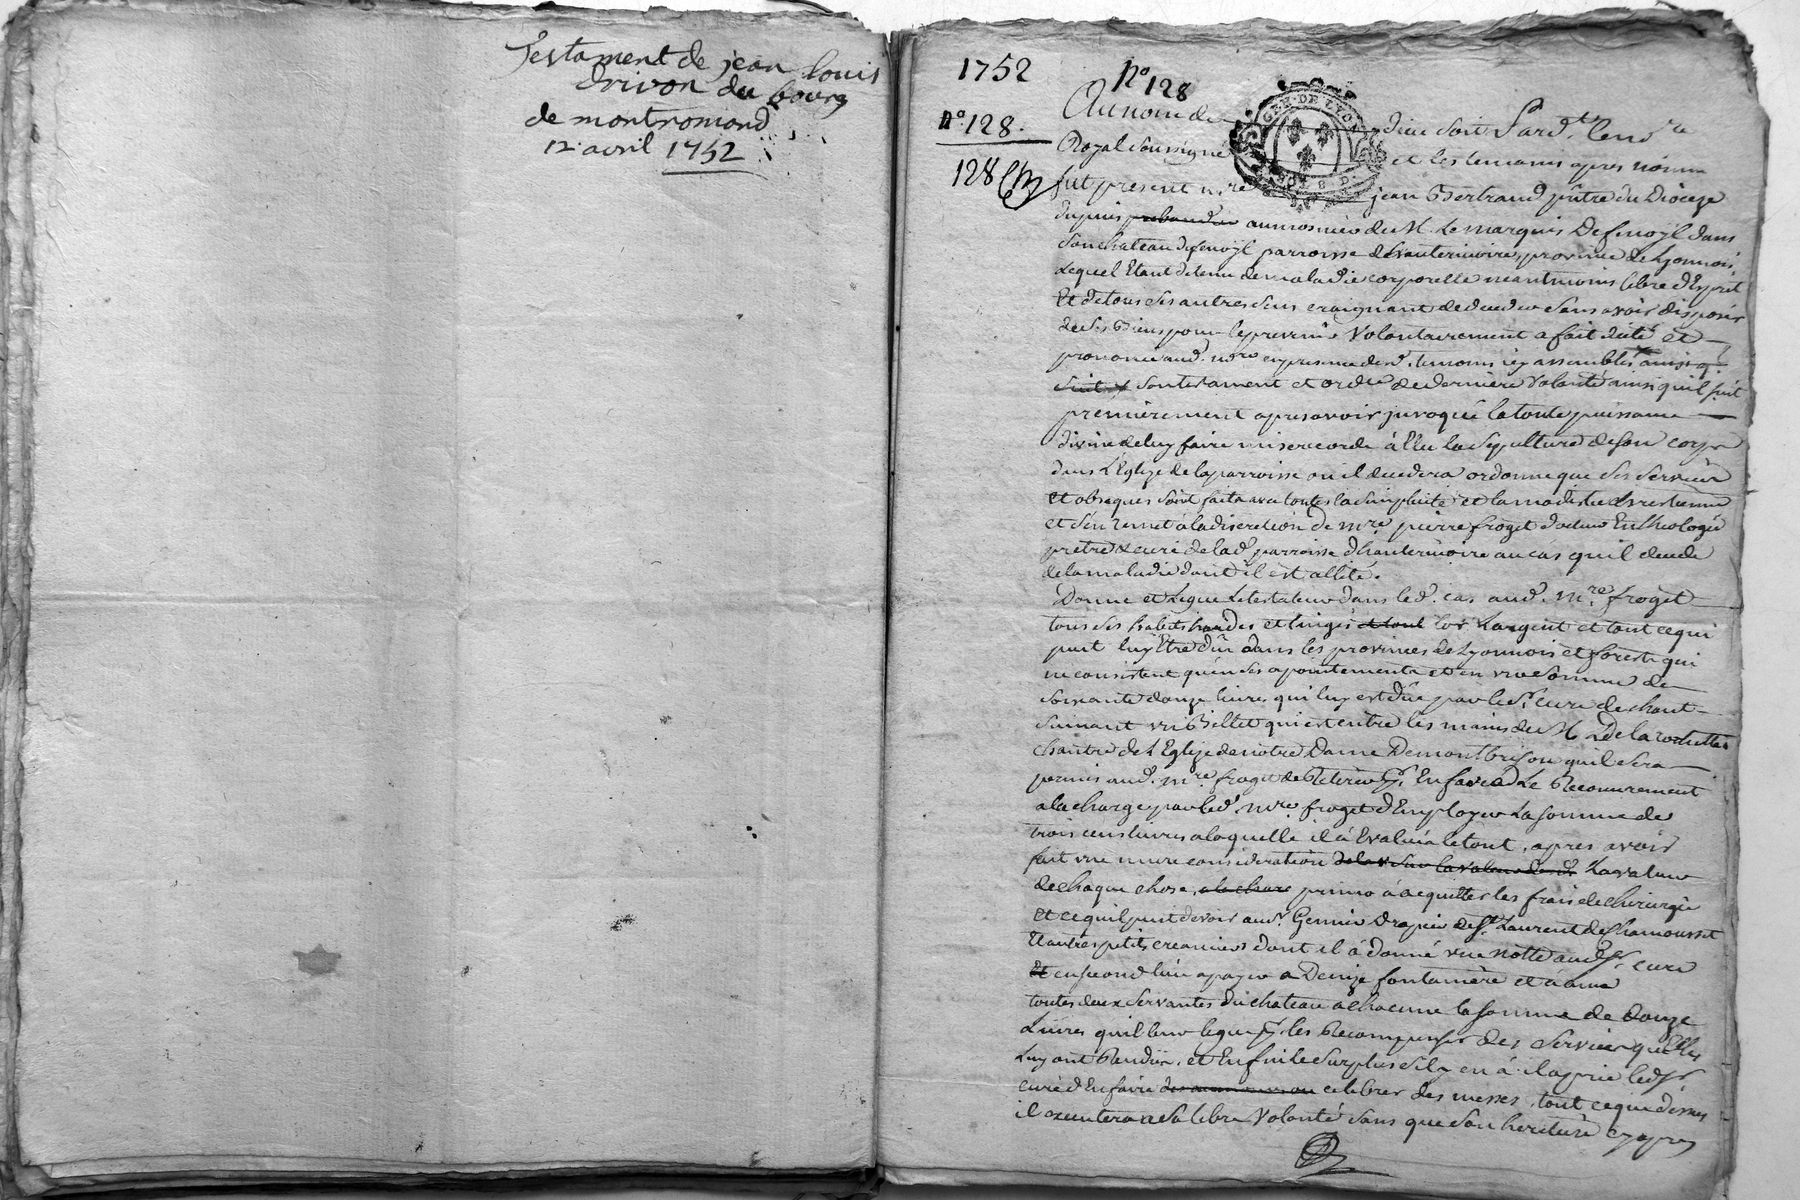 Testament de jean louis
drivon du bourg
de montromand
12 avril 1752
1752
N° 128
n° 128.
128
GEN. DE LYON
Au nom de dieu soit Pard.t le no.re
Royal soussigné et les temoins apres nommés
fut present m.re jean Bertrand prêtre du Dioceze
dupuis aumosnier de M. Le marquis De fenoÿl dans
son chateau de fenoÿl parroisse de hauterivoire, province de Lyonnois,
Lequel Etant detenu de maladie corporelle neantmoins libre d'Esprit
Et de tous ses autres sens craignant de deceder sans avoir disposé
de ses Biens pour le prevenir Volontairement a fait dicté et
prononcé aud. no.re en presence desd. temoins icy assemblés ainsi q.
suit son testament et ordre de derniere Volonté ainsi qu'il suit
premierement apres avoir jnvoqué la toute puissance
divine de luy faire misericorde à Elu la sepulture de son corps
dans L'Eglize de la parroisse ou il decedera ordonne que ses services
et obseques soint faits avec toutes la simplicité et la modestie chrestienne
et s'en remet à la discretion de m.re pierre froget docteur En theologie
prêtre & curé de lad. parroisse d'hauterivoire au cas qu'il decede
de la maladie dont il est allité.
Donne et Legue Le testateur dans led. cas aud. m.re froget
tous ses habits hardes et linges et tout l'or L'argent et tout ce qui
peut luy Etre dûr dans les provinces de Lyonnois et forests qui
ne consistent qu'en ses apointements et en vne somme de
soixante douze livres qui luy est dûe par le s.r curé de
suivant vn Billet qui est entre les mains de M. De la rochette
chantre de L'Eglize de notre Dame De montbrison qu'il sera
permis aud. m.re froget de Retirer p.r En faire Le Recouvrement
a la charge par led. m.re froget d'Employer La somme de
trois cens livres a laquelle il à Evalué le tout, apres avoir
fait vne mure consideration de la valeur
de chaque chose, a la charge primo à acquitter les frais de chirurgie
et ce qu'il peut devoir au s.r Gennier Drapier de S.t Laurent de Chamousset
Et autres petits creanciers dont il à donné vne notte aud. s.r curé
Et en second lieu a payer a Denize fontaniere et à anne
toutes deux servantes du chateau à chacune la somme de douze
Livres qu'il leur legue p.r les Recompenser des services qu'elles
Luy ont Rendûs, et Enfin le surplus s'il y en à il prie led. s.r
curé d'En faire celebrer des messes, tout ce que dessus
il executera a sa libre Volonté sans que son heritiere cy apres